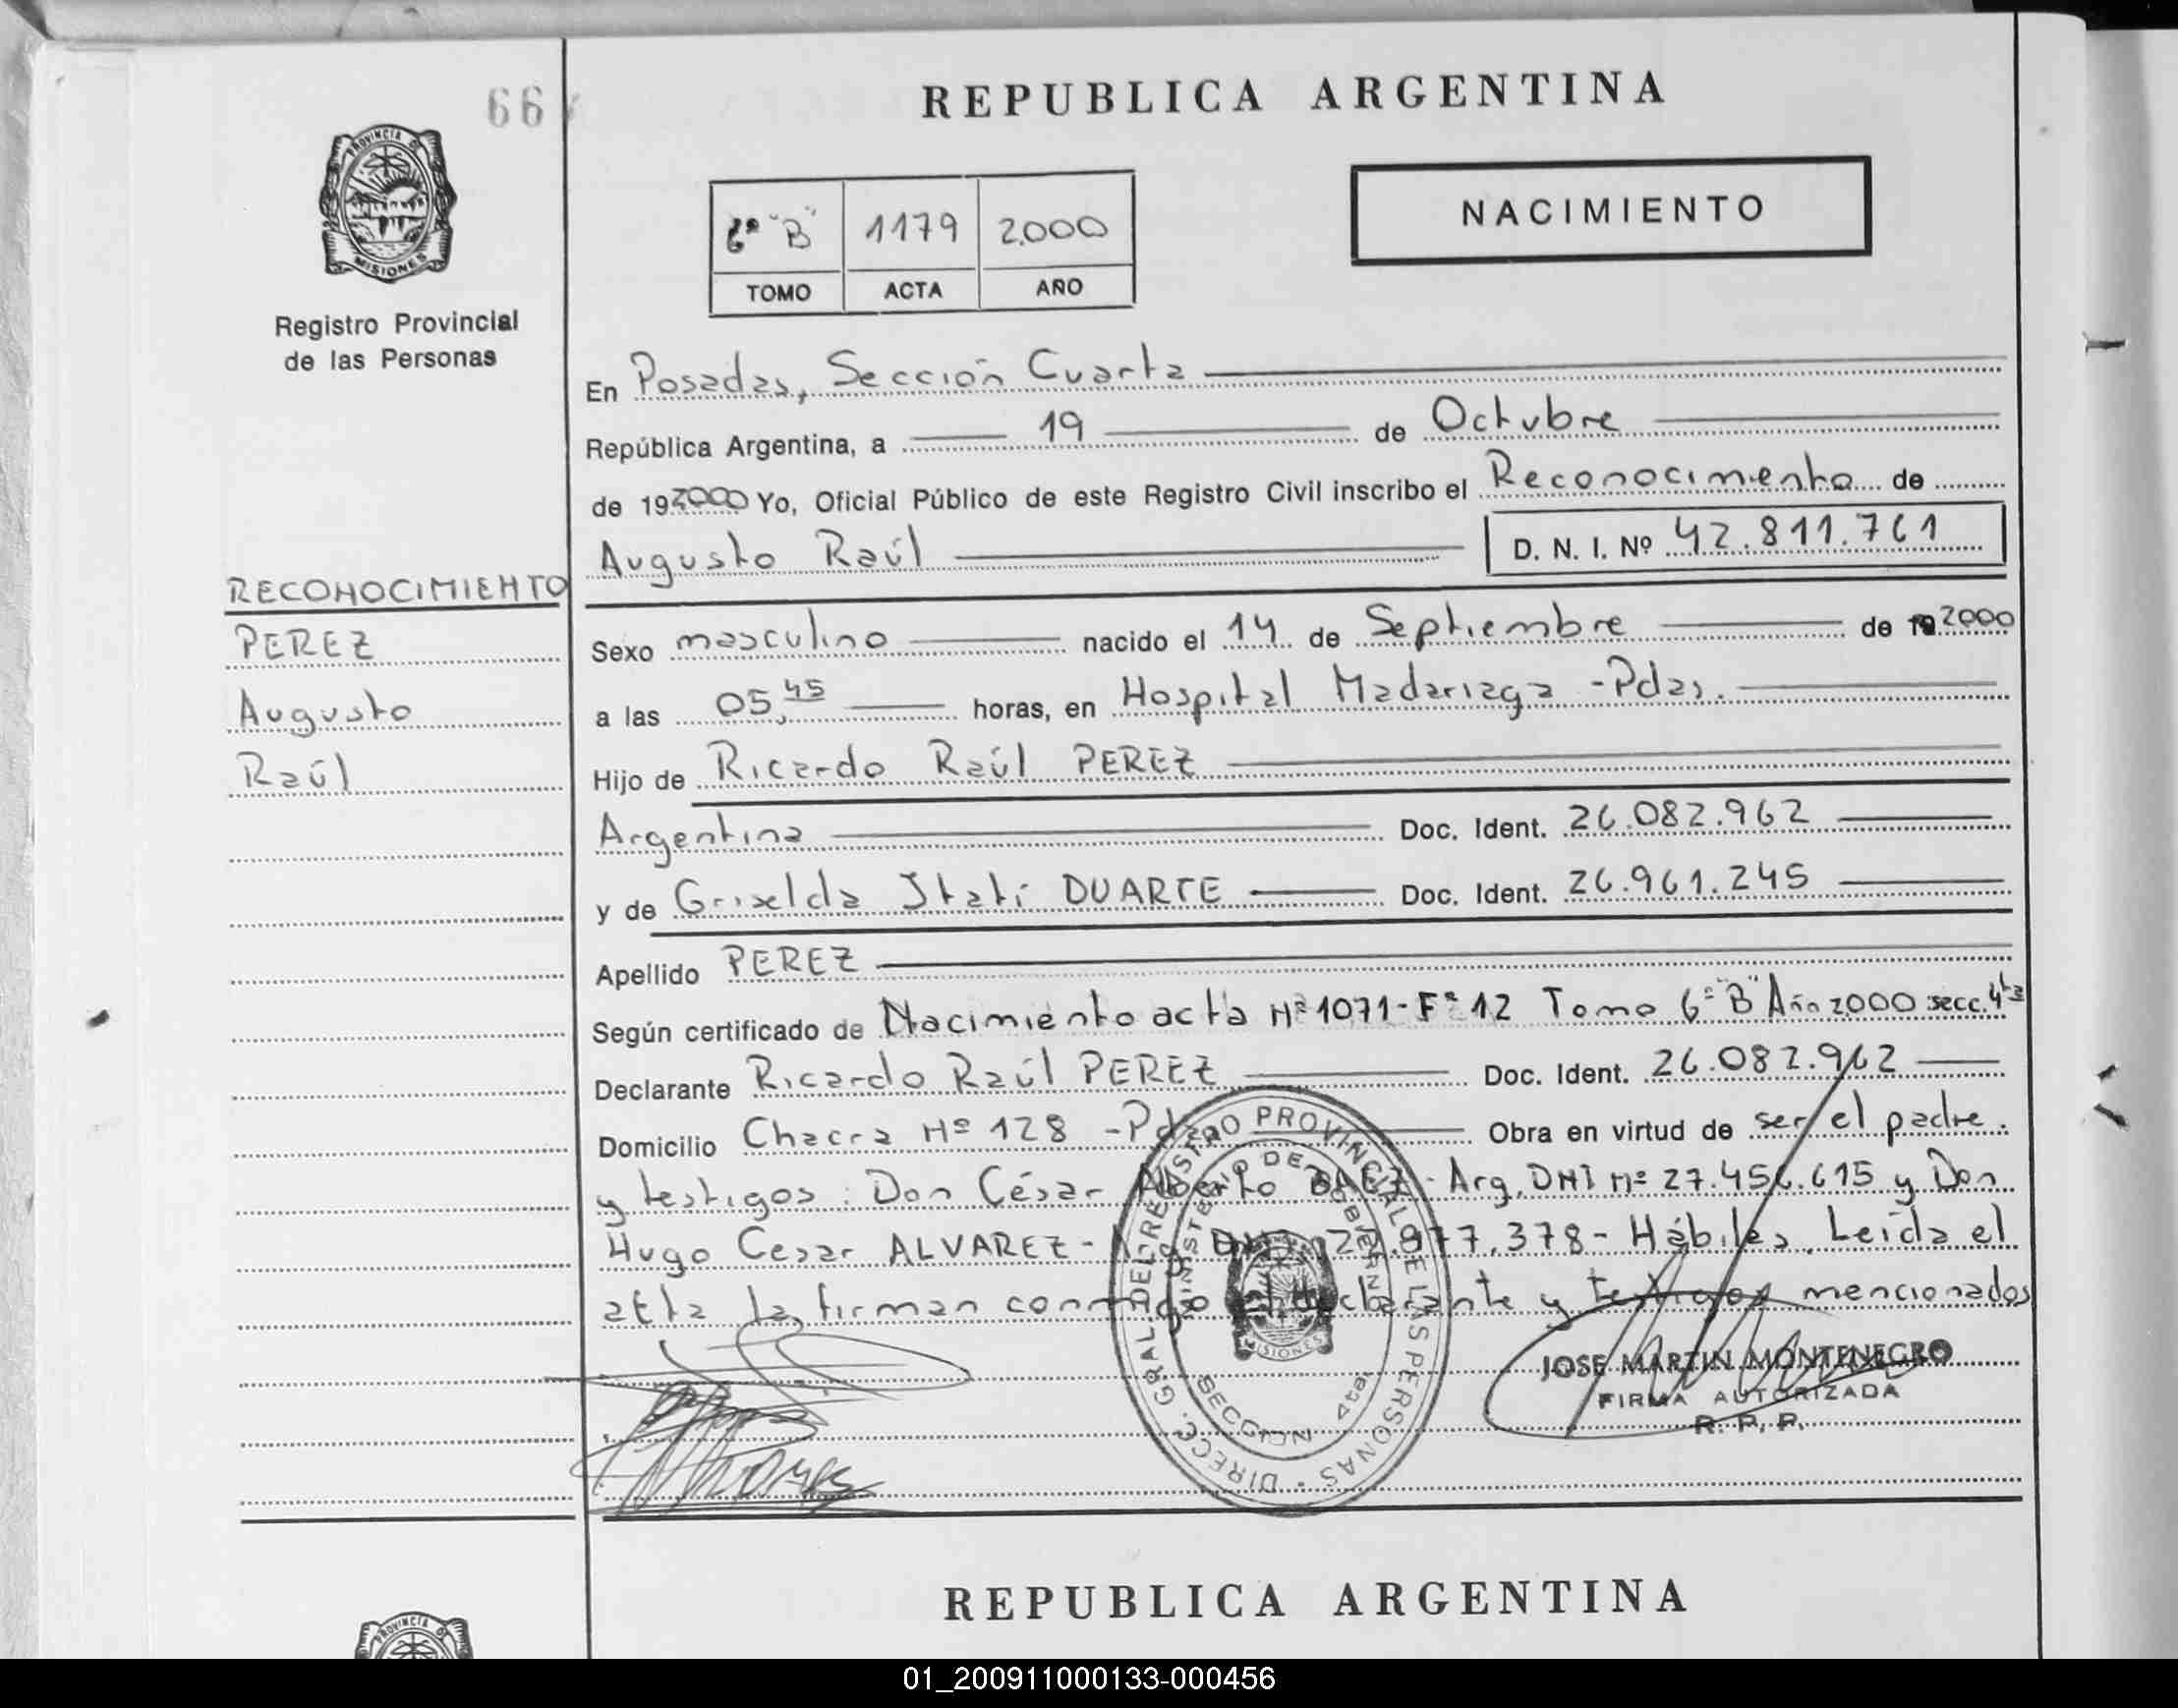 66
REPUBLICA ARGENTINA
PROVINCIA DE
MISIONES
6º "B" 1179 2.000
TOMO ACTA AÑO
NACIMIENTO
Registro Provincial
de las Personas
En Posadas, Sección Cuarta
República Argentina, a 19 de Octubre
de 192000 Yo, Oficial Público de este Registro Civil inscribo el Reconocimiento de
Augusto Raúl D. N. I. Nº 42.811.761
RECONOCIMIENTO
PEREZ
Augusto
Raúl
Sexo masculino nacido el 14 de Septiembre de 19 2000
a las 05,45 horas, en Hospital Madariaga - Pdas.
Hijo de Ricardo Raúl PEREZ
Argentina Doc. Ident. 26.082.962
y de Griselda Itatí DUARTE Doc. Ident. 26.961.245
Apellido PEREZ
Según certificado de Nacimiento acta Nº 1071- Fº 12 Tomo 6º "B" Año 2000 secc. 4ta
Declarante Ricardo Raúl PEREZ Doc. Ident. 26.082.962
Domicilio Chacra Nº 128 - Pdas Obra en virtud de ser el padre.
y testigos: Don César Alberto BAEZ - Arg. DNI Nº 27.456.615 y Don
Hugo Cesar ALVAREZ - 977.378 - Hábiles. Leída el
acta la firman conmigo el declarante y testigos mencionados
DIRECC. GRAL. DEL REGISTRO PROVINCIAL DE LAS PERSONAS
MINISTERIO DE GOBIERNO
MISIONES
SECCION 4ta
JOSE MARTIN MONTENEGRO
FIRMA AUTORIZADA
R. P. P.
REPUBLICA ARGENTINA
PROVINCIA DE
01_200911000133-000456